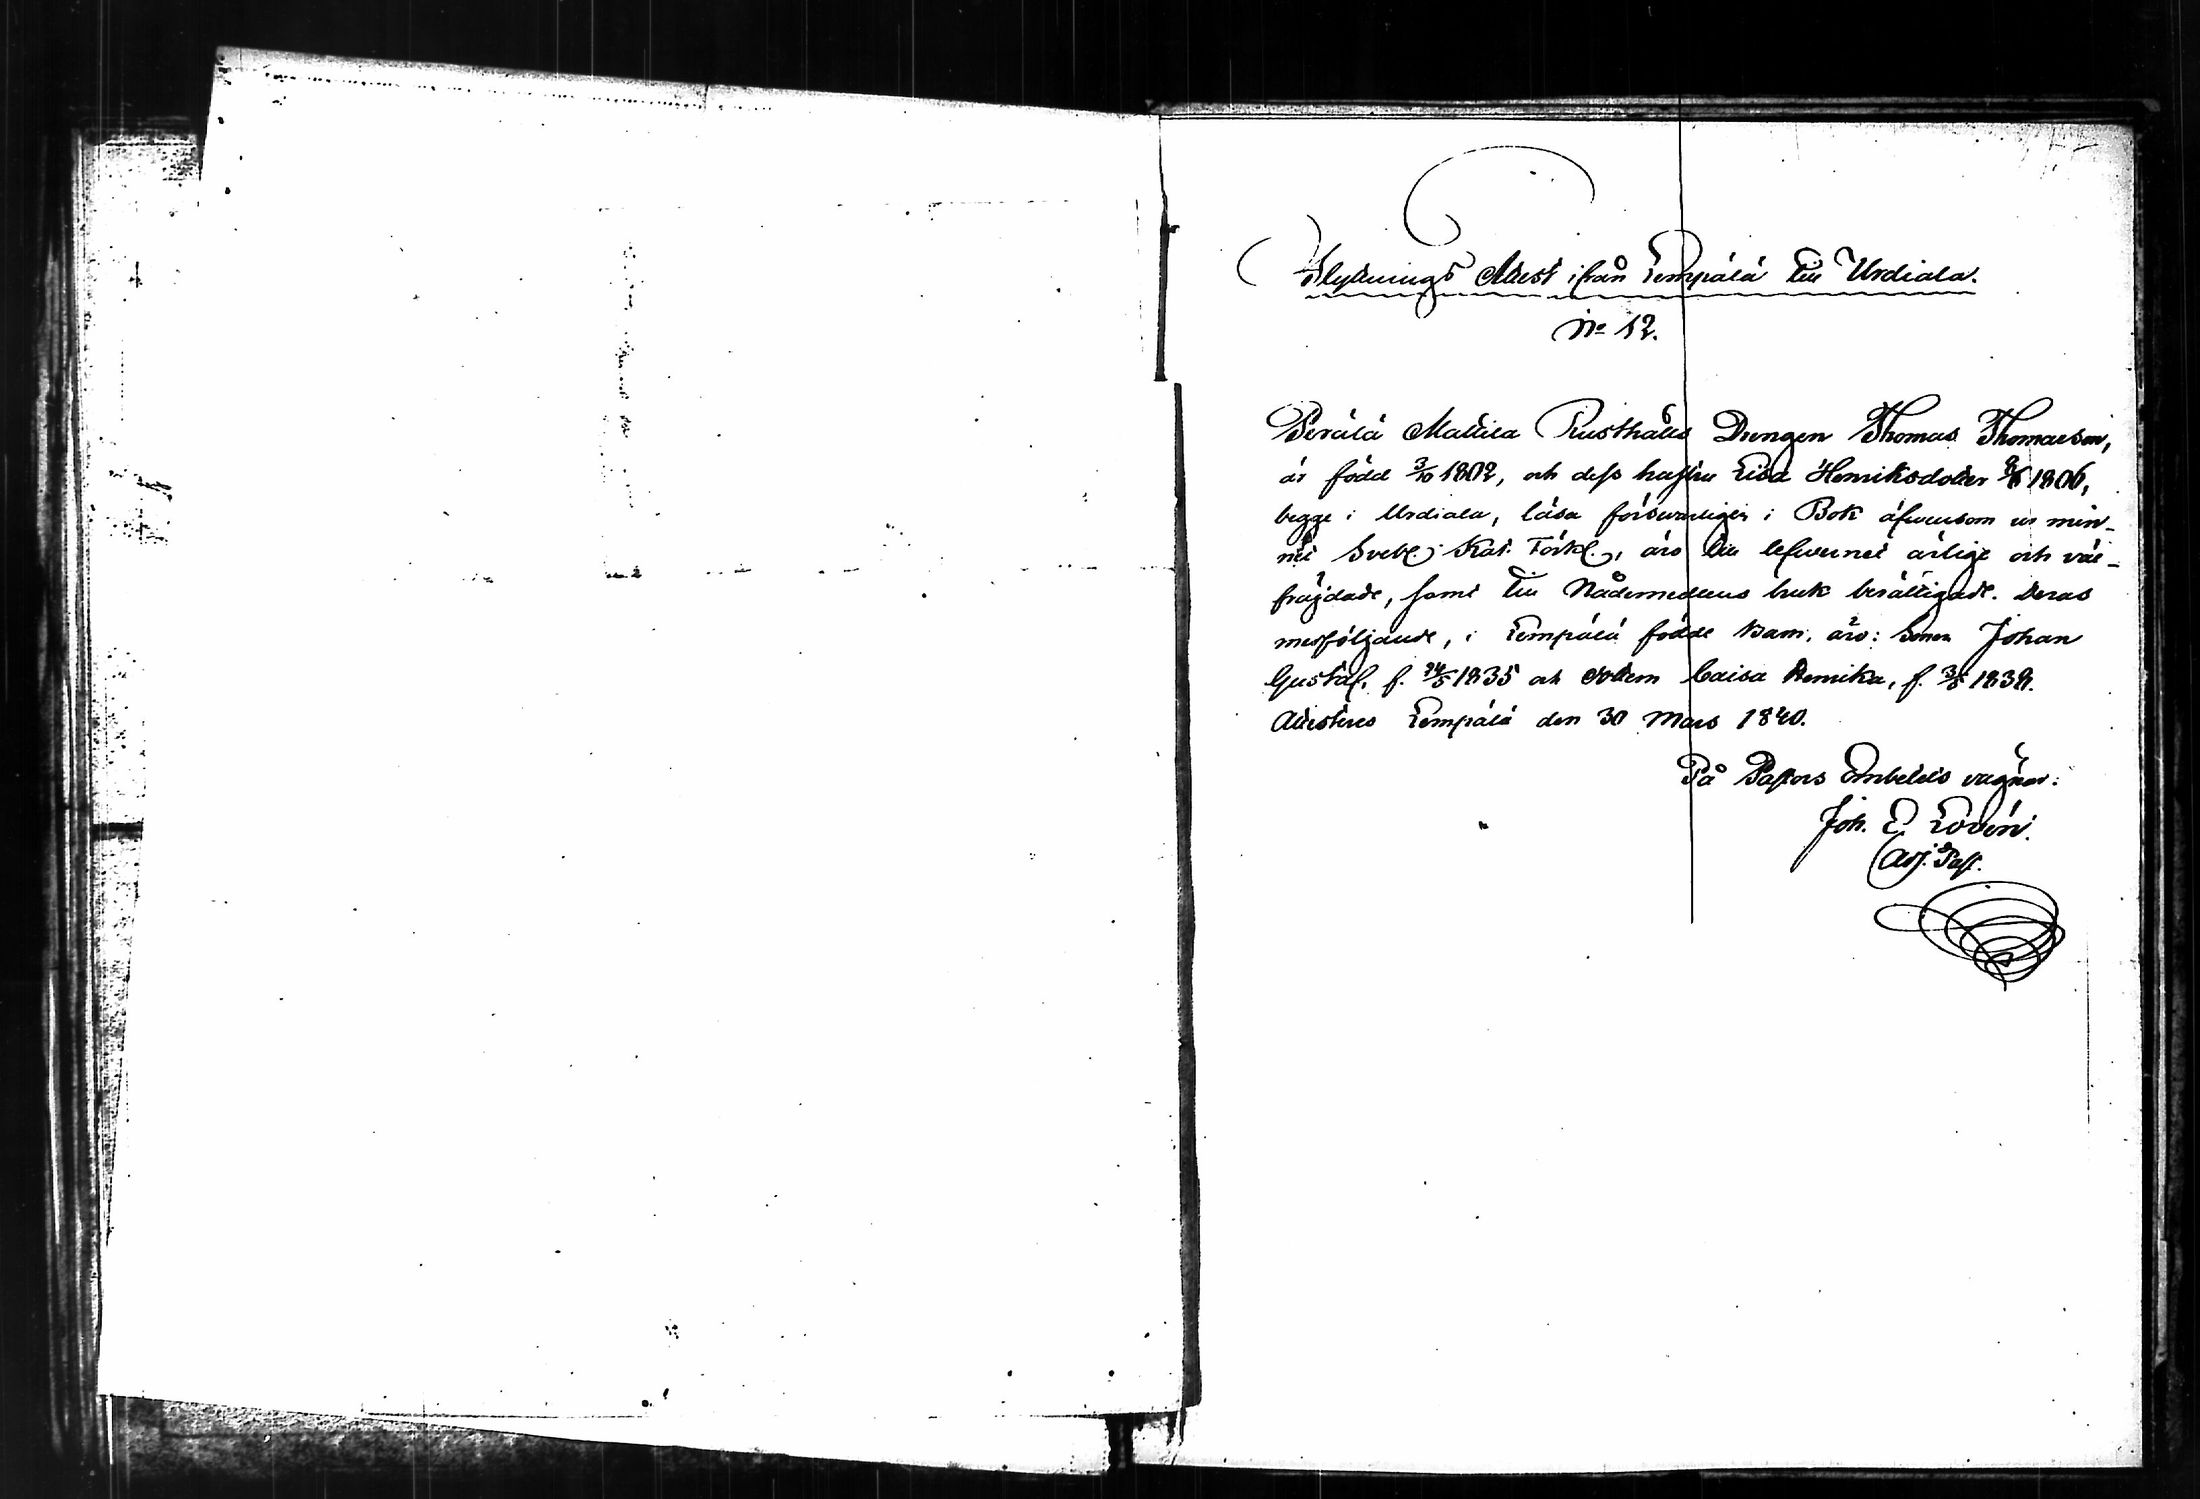 Flyttnings Attest ifrån Lempälä till Urdiala.
No 12.
Perälä Mattila Rusthålls Drengen Thomas Thomasson,
är född 3/10 1802, och dess hustru Lisa Henriksdotter 1806,
begge i Urdiala, läsa försvarligen i Bok äfvensom ur min-
net Svebl. Kat. Förkl., äro till lefvernet ärlige och väl-
fräjdade, samt till Nådemedlens bruk berättigade. Deras
medföljande, i Lempälä födde Barn, äro: Sonen Johan
Gustaf, f. 24/5 1835 och dottern Caisa Henrika, f. 1838.
Attesteras Lempälä den 30 Mars 1840.
På Pastors Embetets vägnar:
Joh. E. Lovén.
Adj. Past.